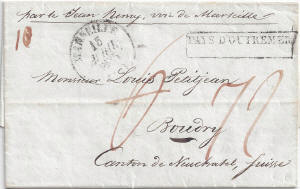 par le Jean Remy, via de Marseille
10
MARSEILLE
15
AVRIL
PAYS D'OUTREMER
Monsieur Louis Petitjean
Boudry
Canton de Neuchatel, Suisse